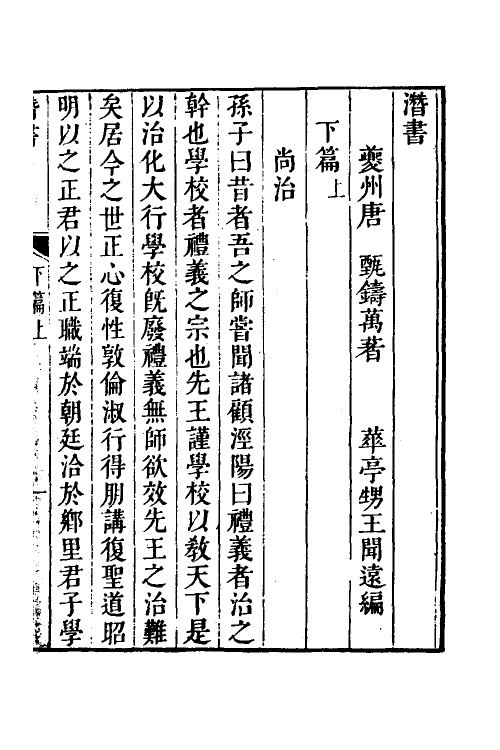 潛書
夔州唐　甄鑄萬著　　華亭甥王聞遠編
下篇上
尚治
孫子曰昔者吾之師嘗聞諸顧涇陽曰禮義者治之
幹也學校者禮義之宗也先王謹學校以敎天下是
以治化大行學校旣廢禮義無師欲效先王之治難
矣居今之世正心復性敦倫淑行得朋講復聖道昭
明以之正君以之正職端於朝廷洽於鄉里君子學
下篇上